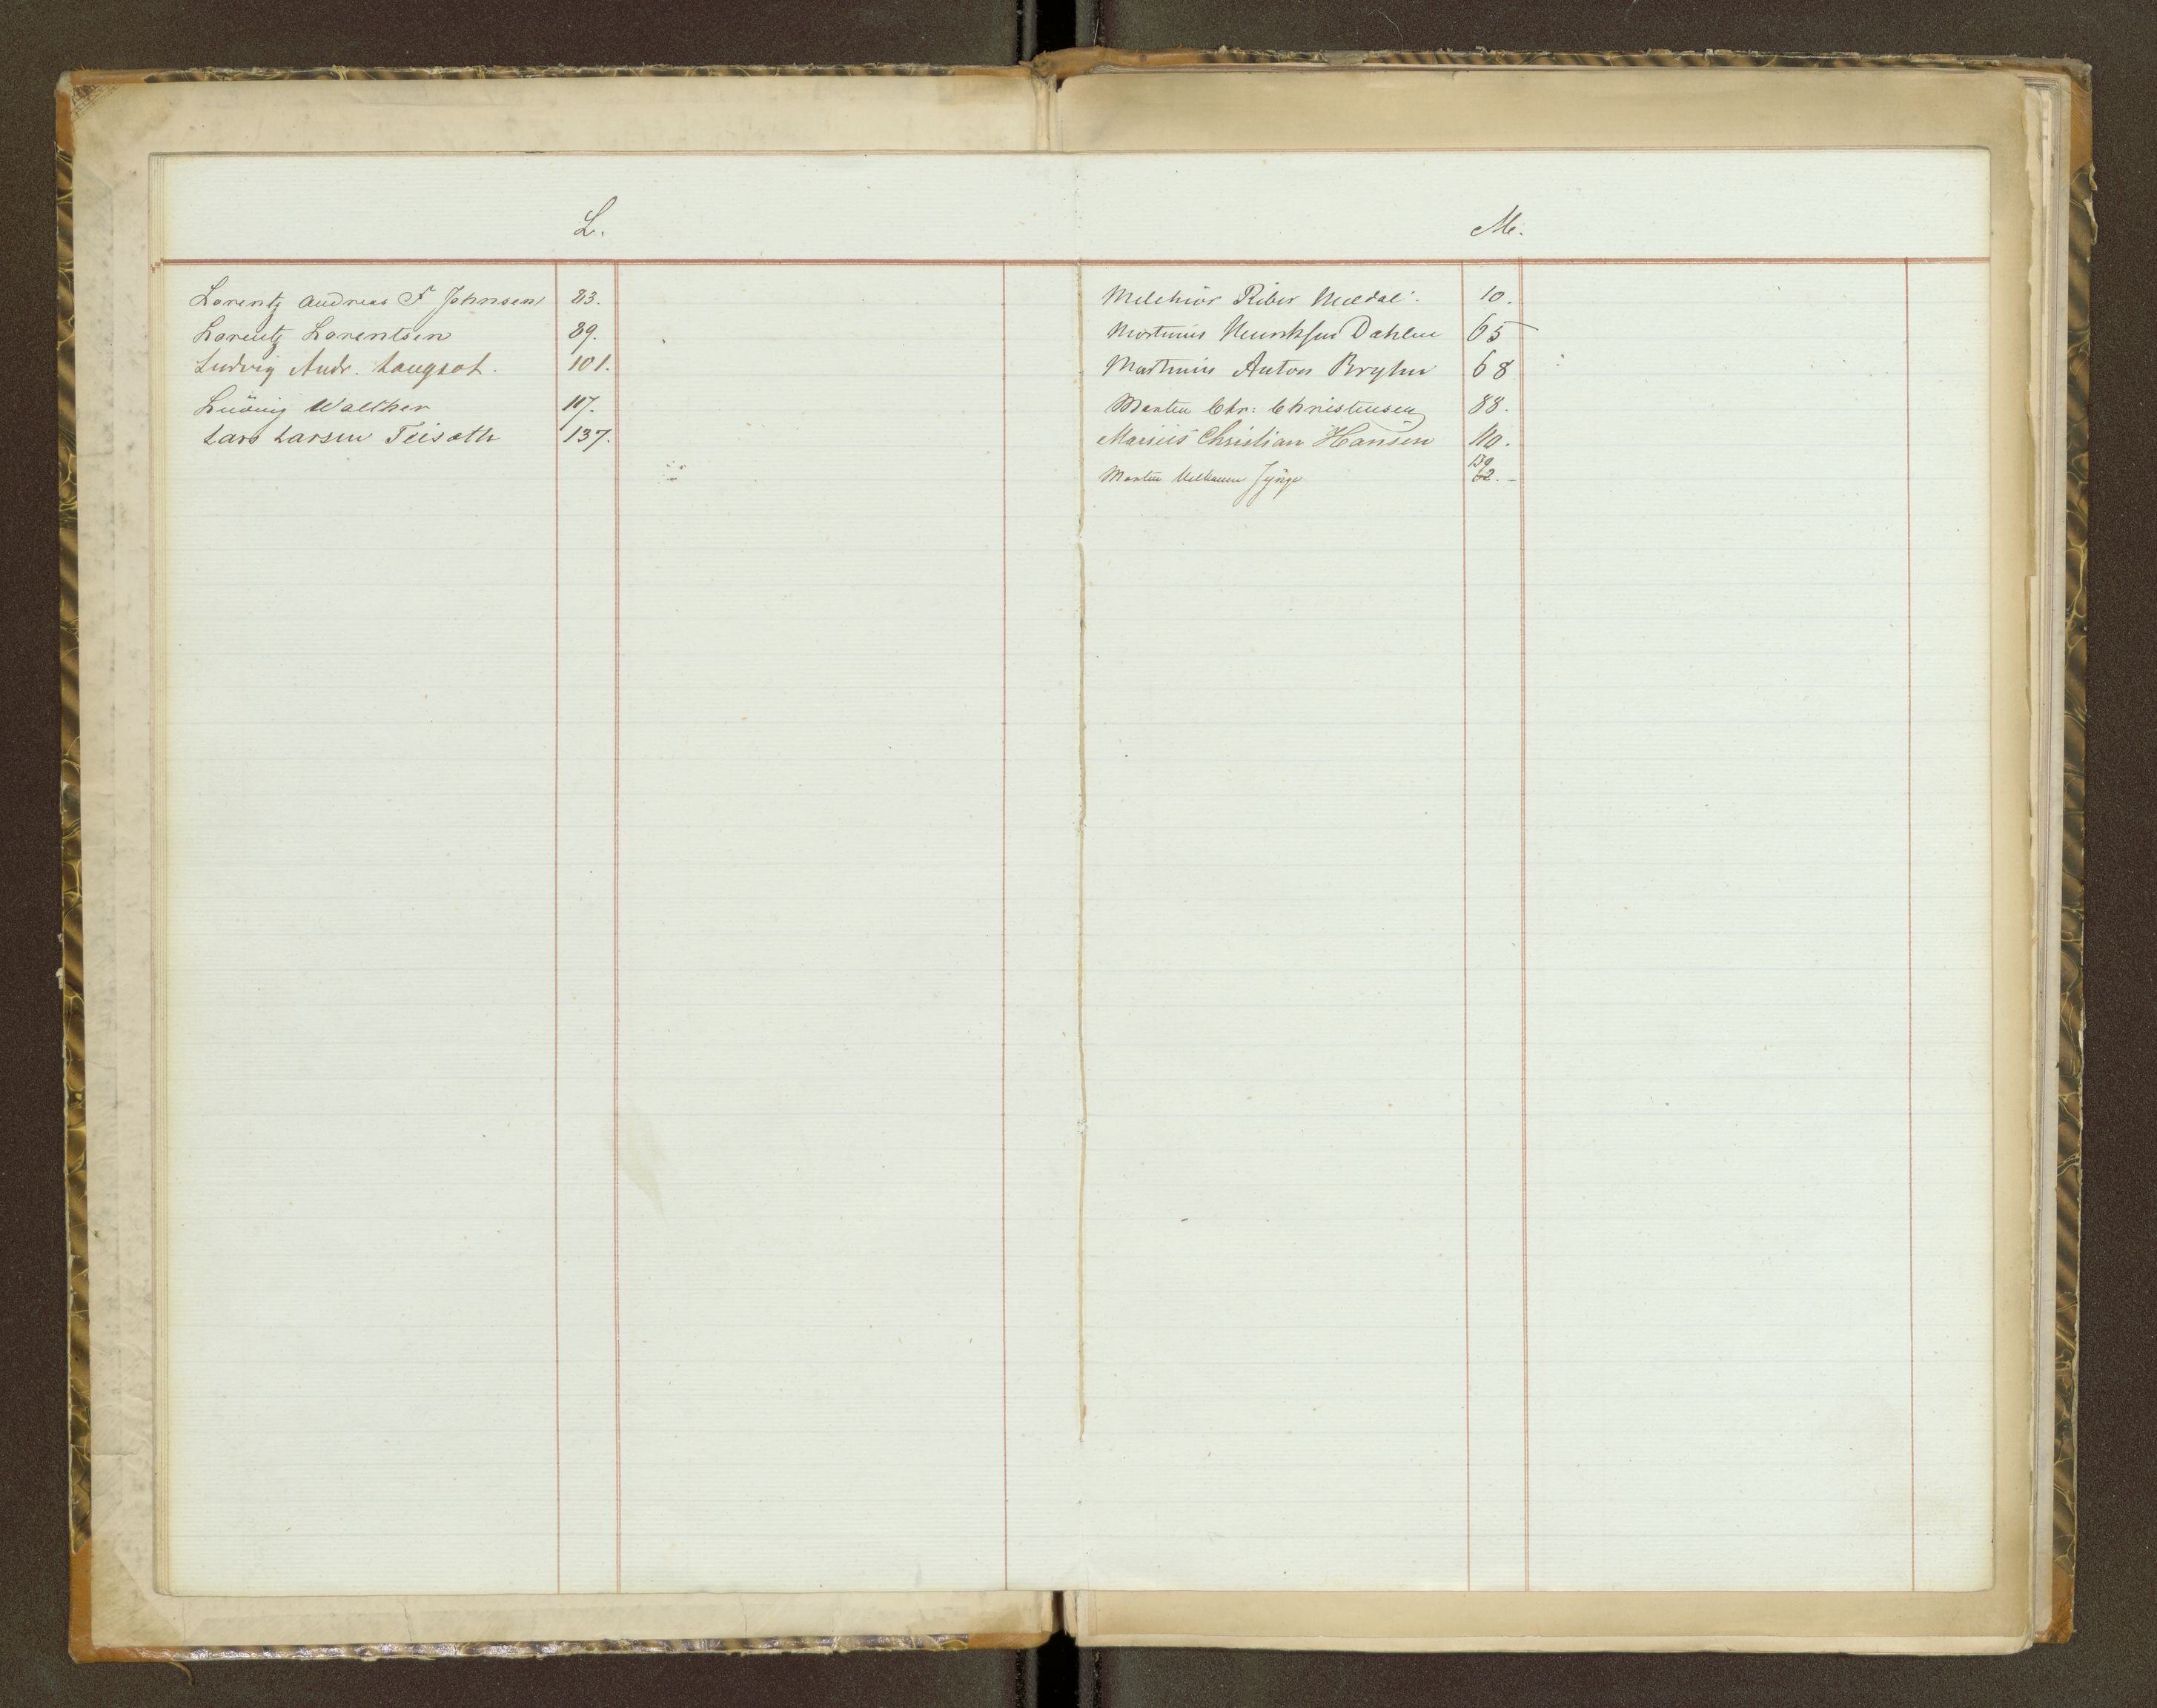 L.
Lorentz Andreas F Johnsen 83.
Lorentz Lorentsen 89.
Ludvig Andr. Langsot. 101.
Ludvig Walther 117.
Lars Larsen Teisath 137.
M.
Melchior Riber Meldal. 10.
Martinus Henriksen Dahlen 65
Martinus Anton Bryhn 68
Marten Chr: Christensen 88.
Marius Christian Hansen 110.
139
Martin 62.